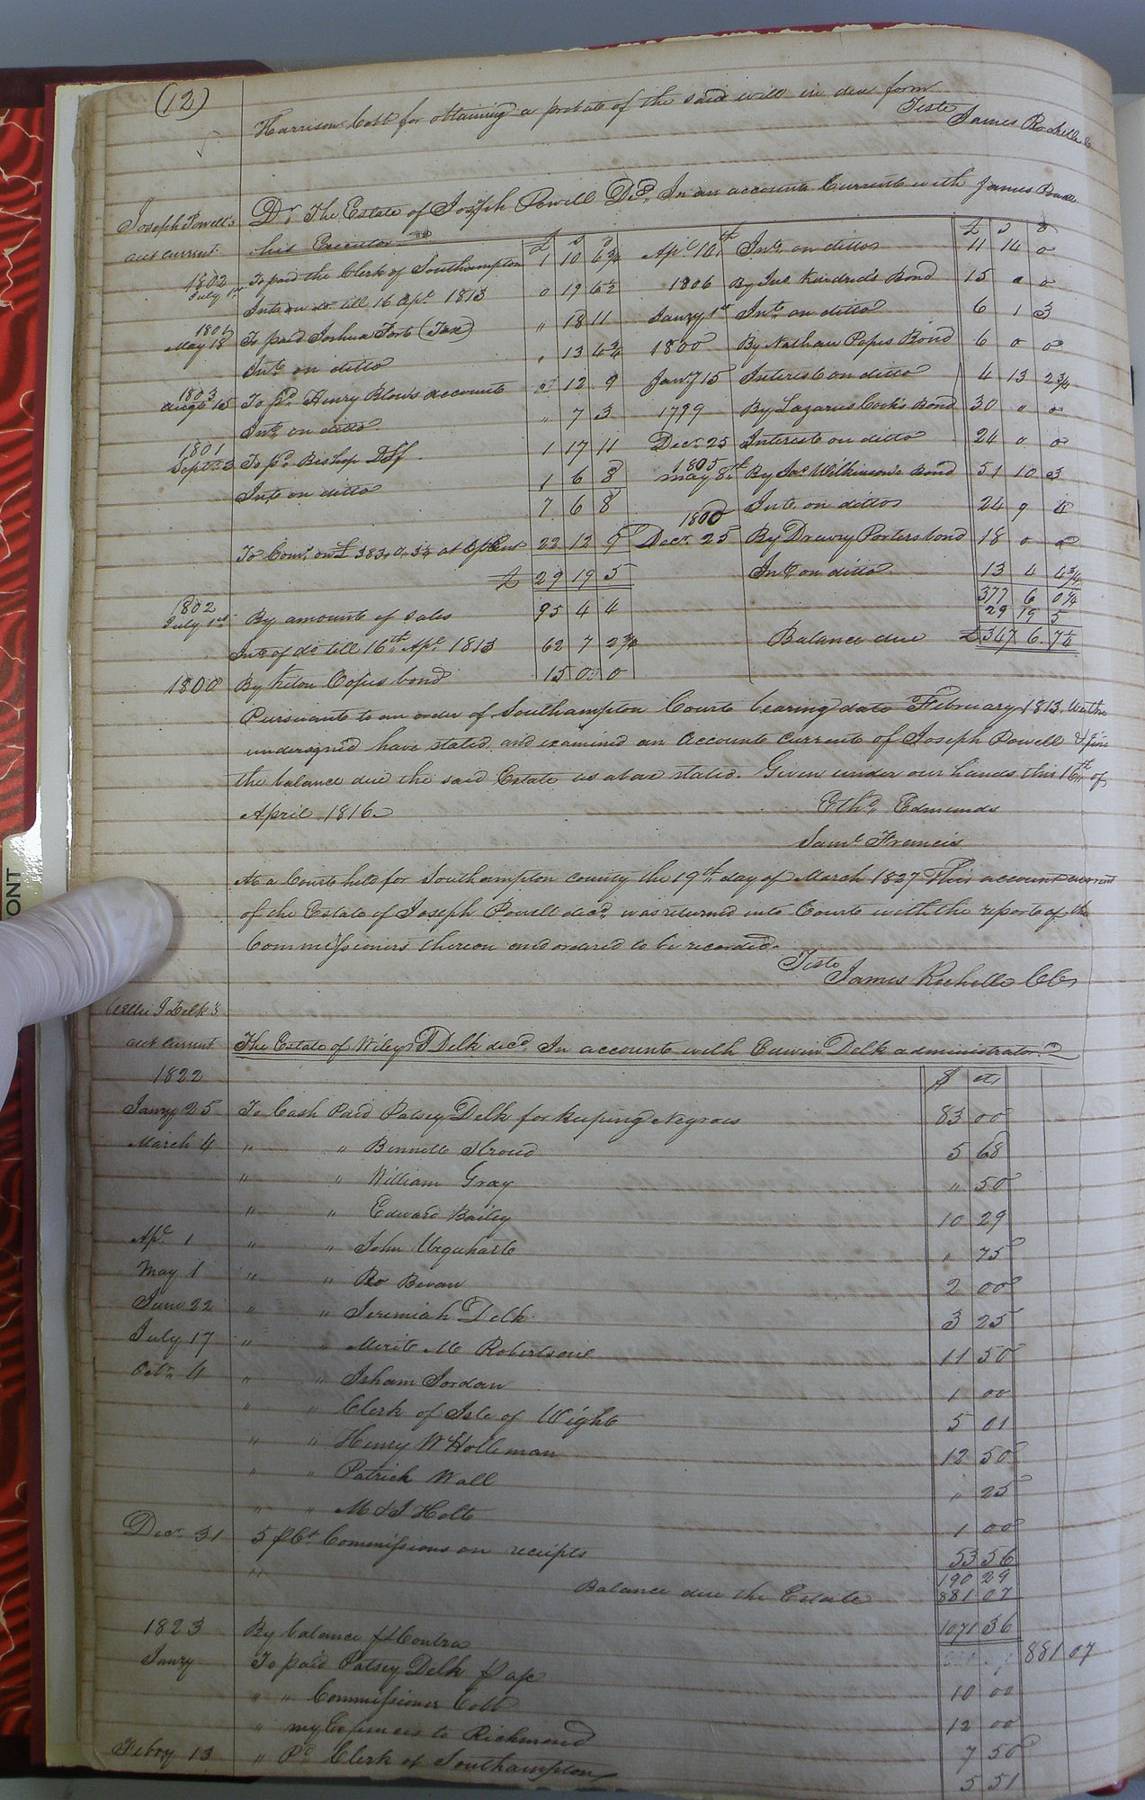 (12)
Harrison Cobb for obtaining a probate of the said will in due form
Teste James Rochelle
Joseph Powell's acct current
Dr. The Estate of Joseph Powell Decd. In an account Current with James
his Executor
£ s d
1802 July 1st To paid the Clerk of Southampton 1 10 6¾
Int. on do. till 16 Apl. 1813 0 19 6½
May 18 To paid Joshua Fort (Tax) " 18 11
Int. on ditto " 13 6¾
1803 Augt 25 To pd. Henry Blows account 12 9
Int. on ditto " 7 3
1801 Septr 3 To pd. Bishop 1 17 11
Int. on ditto 1 6 8
7 6 8
To Coms. on £383 at Ct 22 12 9
£ 29 19 5
1802 July 1st By amount of sales 95 4 4
Int. of do. till 16th Apl. 1813 62 7 2¾
1800 By bond 15 0 0
£ s d
Apl. 16th Int. on ditto 11 14 0
1806 By Jno. Kindred's Bond 15 0 0
Janry 1st Int. on ditto 6 1 3
1800 By Nathan Popes Bond 6 0 0
Jany 15 Interest on ditto 4 13 2¾
1799 By Lazarus Cook's Bond 30 " 0
Decr. 25 Interest on ditto 24 " 0
1805 May 8th By Jno. Wilkinson's Bond 51 10 3
Int. on ditto 24 9 4
1800 Decr. 25 By Drewry Porters bond 18 0 0
Int. on ditto 13 4 4¾
377 6 0¼
29 19 5
Balance due £347 6 7½
Pursuant to an order of Southampton Court bearing date February 1813, We the
undersigned have stated and examined an Account Current of Joseph Powell & find
the balance due the said Estate as above stated. Given under our hands this 16th of
April 1816.
Ethd. Edmunds
Saml. Francis
At a Court held for Southampton county the 19th day of March 1827 This account current
of the Estate of Joseph Powell decd. was returned into Court with the report of the
Commissioners thereon and ordered to be recorded.
Teste
James Rochelle CC
J Delk's
acct current
The Estate of Wiley J Delk decd. In account with Edwin Delk administrator
1822 $ cts
Janry 25 To Cash Paid Patsey Delk for keeping Negroes 83 00
March 4 " " Bennett Stroud 5 68
" " William Gray " 50
" " Edward Bailey 10 29
Apl. 1 " " John Urquhart " 75
May 1 " " Ro Bevan 2 00
June 22 " " Jeremiah Delk 3 25
July 17 " " Merit M Robertson 11 50
Octr. 4 " " Isham Jordan 1 00
" " Clerk of Isle of Wight 5 01
" " Henry W Holleman 12 50
" " Patrick Wall " 25
" " M & J Holt 1 00
Decr. 31 5 pCt. Commissions on receipts 53 56
190 29
" Balance due the Estate 881 07
1071 36
1823 By balance pr Contra 881 07
Janry To paid Patsey Delk p a/c 10 00
" " Commissioner Cobb 12 00
" my Expences to Richmond 7 50
Febry 13 " Pd. Clerk of Southampton 5 51
ONT